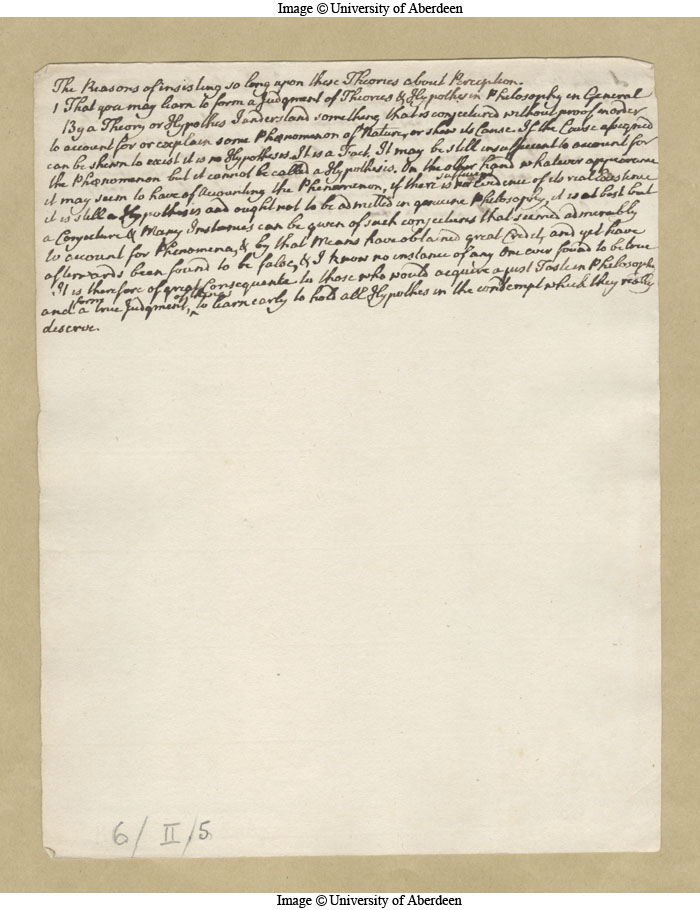 Image © University of Aberdeen
The Reasons of insisting so long upon these Theories about Perception.
1 That you may learn to form a Judgment of Theories & Hypotheses in Philosophy in General
By a Theory or Hypothes I understand something that is conjectured without proof in order
to account for or explain some Phænomenon of Nature, or shew its Cause. If the Cause assigned
can be shewn to exist it is no Hypothesis. It is a Fact. It may be still insufficient to account for
the Phænomenon but it cannot be called a Hypothesis. On the other hand whatever appearance
it may seem to have of Accounting the Phenomenon, if there is not sufficient evidence of its real existence
it is still a Hypothesis and ought not to be admitted in genuine Philosophy, it is at best but
a Conjecture & Many Instances can be given of such conjectures that seemed admirably
to account for Phenomena, & by that Means have obtained great Credit, and yet have
afterwards been found to be false, & I know no instance of any one ever found to be true
It is therefore of great Consequence to those who would acquire a just Taste in Philosophy
and form a true Judgment, of things to learn early to hold all Hypothes in the contempt which they really
deserve.
6/II/5
Image © University of Aberdeen